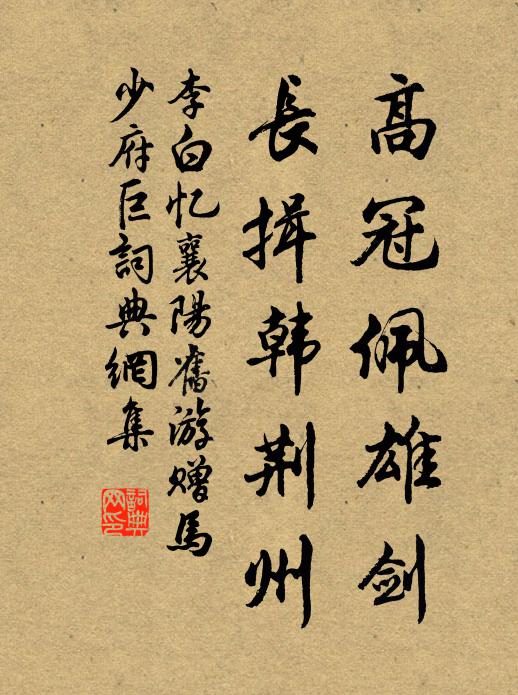 高冠佩雄剑
長揖韩荆州
李白忆襄陽舊游赠馬
少府巨詞典網集
詞典
网印